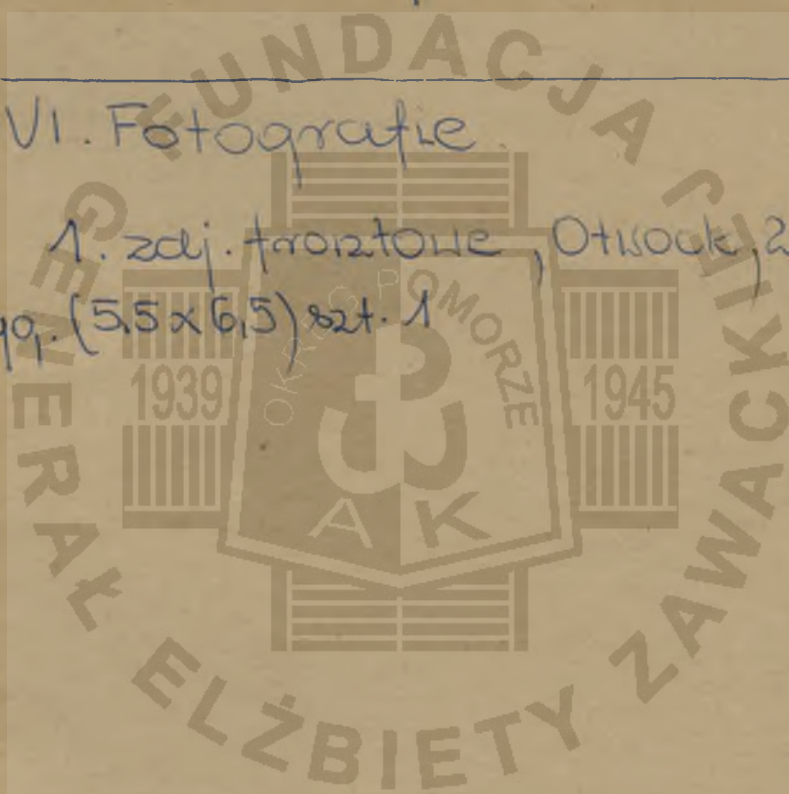 VI. Fotografie.
1. zdj. frontowe, Otwock, 2
(5,5 x 6,5) szt. 1
FUNDACJA GENERAŁ ELŻBIETY ZAWACKIEJ
OKRĘG POMORZE
1939
1945
AK